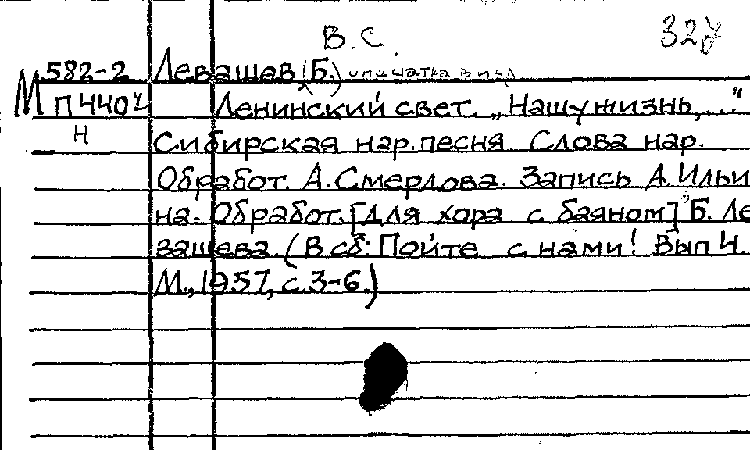 В.С. 327
М 582-2 Левашев (Б.) опечатка в изд
П 440 2 Ленинский свет. „Нашу жизнь,..."
Н Сибирская нар. песня. Слова нар.
Обработ. А. Смердова. Запись А. Ильи
на. Обработ. [для хора с баяном] Б. Ле
вашева. (В сб: Пойте с нами! Вып 4.
М., 1957, с. 3-6.)